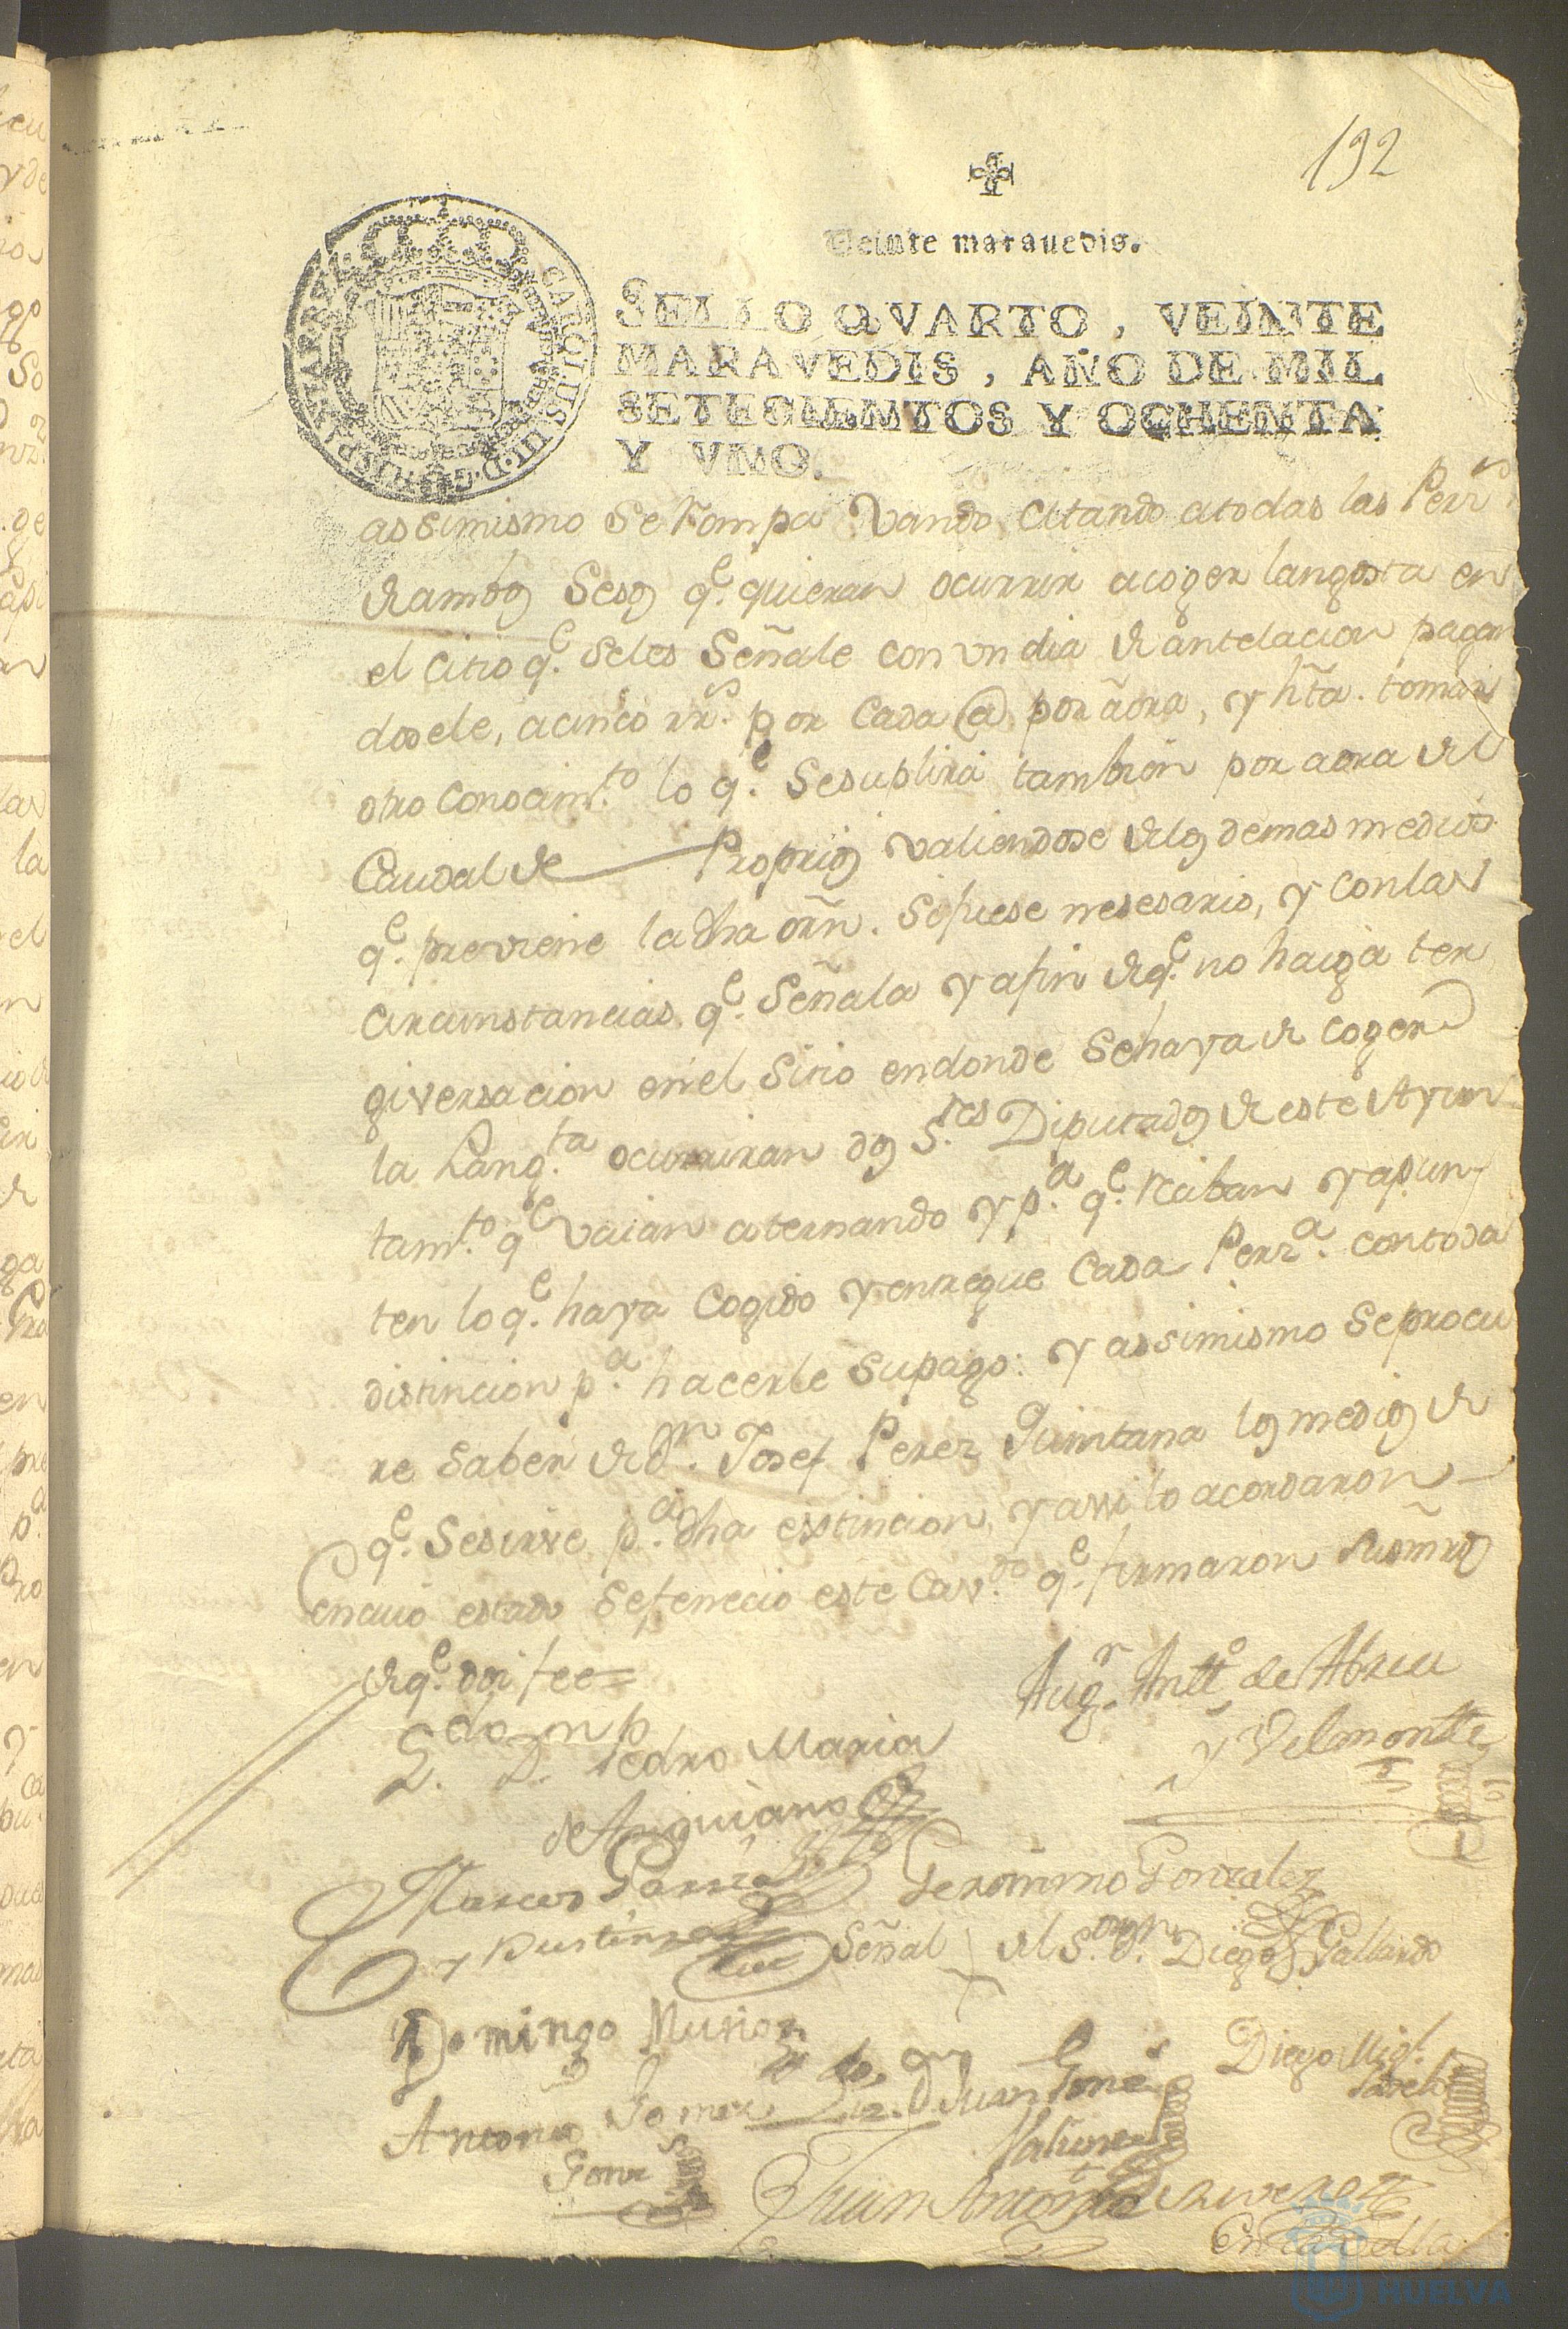 192
Veinte maravedis.
SELLO QVARTO, VEINTE
MARAVEDIS, AÑO DE MIL
SETECIENTOS Y OCHENTA
Y VNO.
CAROLUS III D G HISPANIAR
assimismo se rompa vando, citando atodas las Perrs
de ambos Sesos qe. quieran ocurrir acoger langosta en
el citio qe. seles Señale con vn dia de antelacion pagan
dosele, acinco rrs. por cada @ por aora, y hta. tomar
otro conocimto. lo qe. sesuplirá tambien por aora del
Caudal de Proprios valiendose delos demas medios
qe. previene la dha orn. si fuese nesesario, y con las
circunstancias qe. Señala y afin deqe. no haiga ter
giversacion en el sitio endonde sehaya de coger
la Langta. ocurriran dos Sres. Diputados de este Ayun
tamto. qe vaian alternando y pa. qe. reciban y apun
ten lo qe. haya cogido y entregue cada Perra. contoda
distincion pa. hacerle supago: y assimismo seprocu
re saber de Dn. Josef Perez Quintana los medios de
qe. sesirve pa. dha extincion, y assi lo acordaron
encuio estado sefenecio este Cavdo. qe. firmaron susmrds
deqe. doi fee=
Augn. Antto. de Abreu
y Velmonte
Ldo. Dn. Pedro Maria
de Anguiano
Marcos Parra
Geronimo Gonzalez
Señal del Sor. Dn. Diego Gallardo
Domingo Muñoz
Diego Migl.
Antonio Gomez
Ldo. Dn. Juan
Juan Antonio
HUELVA